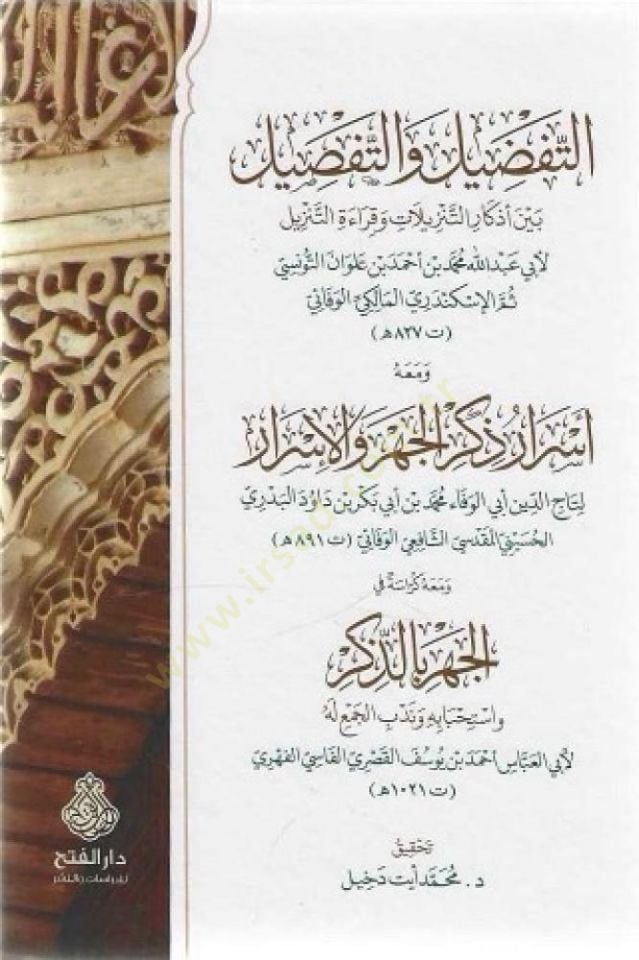 التَّفضِيل وَالتَّفصِيل
بَيْنَ أَذكَارِ التَّنزِيلَاتِ وَقِرَاءَةِ التَّنزِيل
لأَبي عَبدِ اللهِ مُحَمَّد بن أَحمَد بن عَلوَان التُّونُسِيّ
ثُمَّ الإِسكَندَرِيّ المَالِكِيّ الوَفَائِيّ
(ت ٨٢٧ هـ)
وَمَعَهُ
أَسْرَارُ ذِكْرِ الجَهْرِ وَالإِسْرَارِ
لِتَاجِ الدِّين أَبي الوَفَاء مُحَمَّد بن أَبي بَكر بن دَاوُد البَدرِيّ
الحُسَينِيّ المَقدِسِيّ الشَّافِعِيّ الوَفَائِيّ (ت ٨٩١ هـ)
وَمَعَهُ كُرَّاسَةٌ فِي
الجَهْرِ بِالذِّكْرِ
وَاسْتِحْبَابِهِ وَنَدْبِ الجَمْعِ لَهُ
لأَبي العَبَّاس أَحمَد بن يُوسُف القَصرِيّ الفَاسِيّ الفِهرِيّ
(ت ١٠٢١ هـ)
تَحْقِيق
د. مُحَمَّد أَيت دَخِيل
دار الفتح
للدراسات والنشر